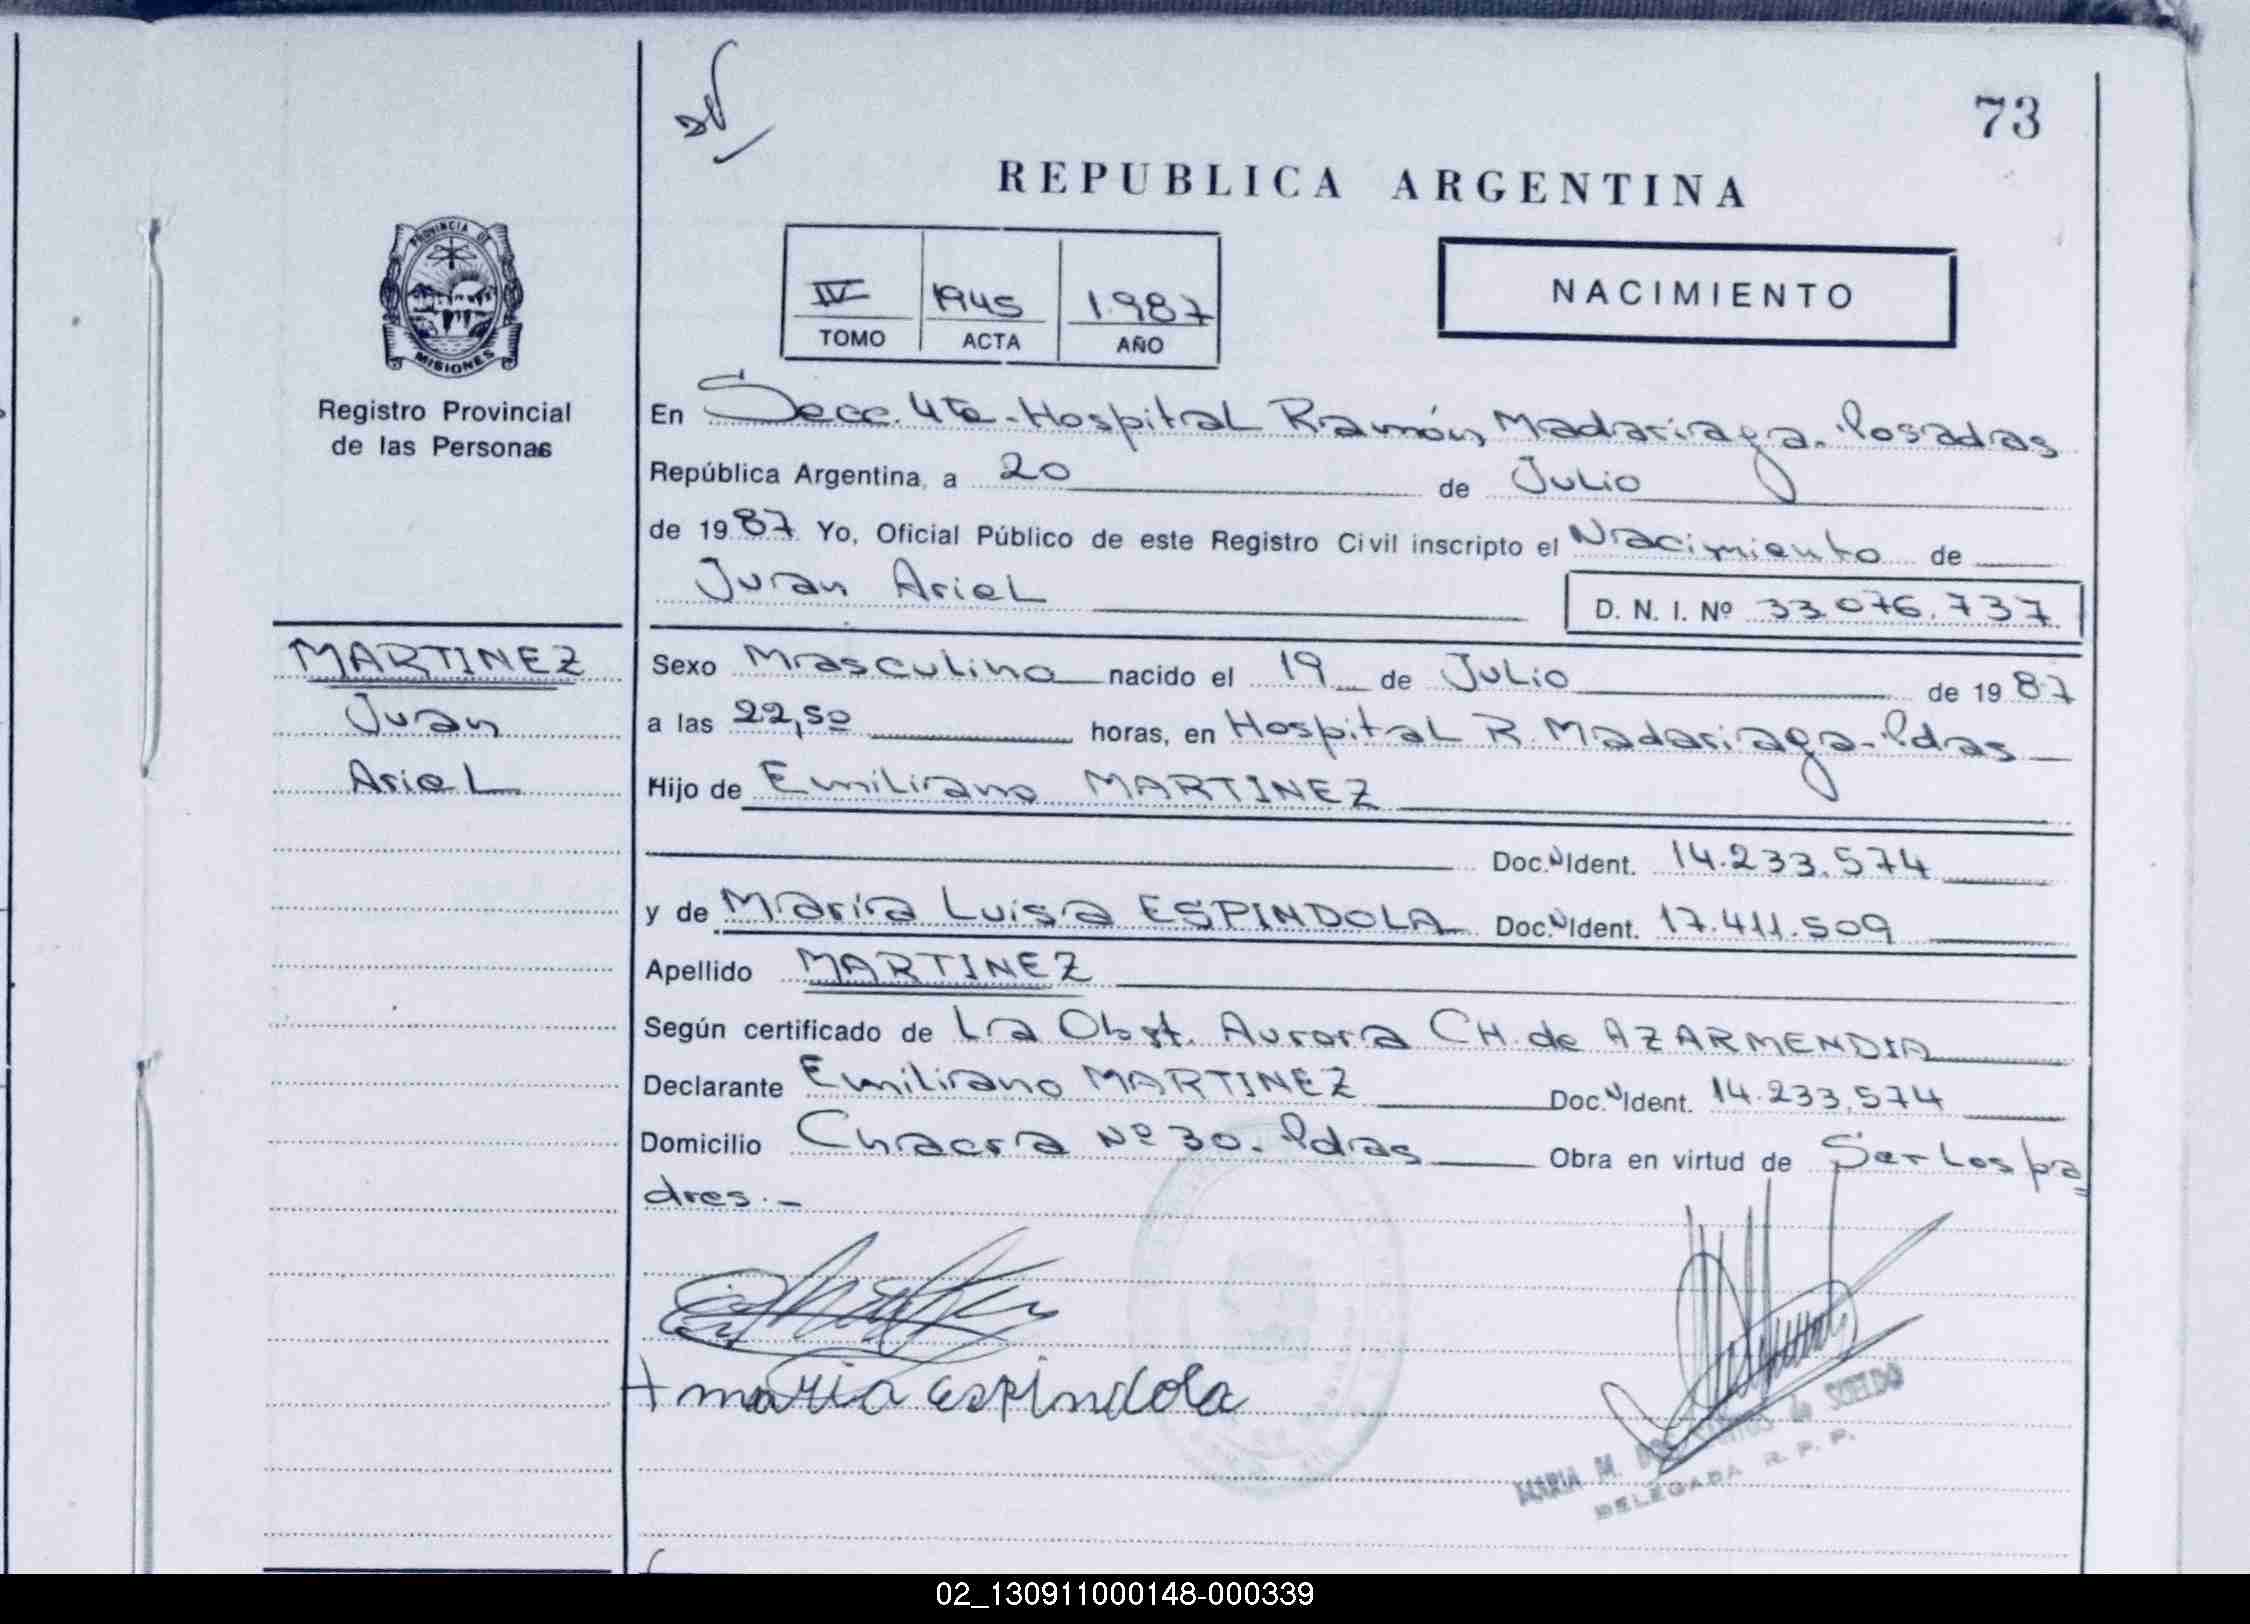 73
REPUBLICA ARGENTINA
PROVINCIA DE
MISIONES
Registro Provincial
de las Personas
IV 1945 1.987
TOMO ACTA AÑO
NACIMIENTO
En Secc. 4ta - Hospital Ramón Madariaga. Posadas
República Argentina, a 20 de Julio
de 1987 Yo, Oficial Público de este Registro Civil inscripto el Nacimiento de
Juan Ariel
D. N. I. Nº 33.076.737
MARTINEZ
Juan
Ariel
Sexo Masculino nacido el 19 de Julio de 1987
a las 22,50 horas, en Hospital R. Madariaga - Pdas
Hijo de Emiliano MARTINEZ
Doc. Ident. 14.233.574
y de María Luisa ESPINDOLA Doc. Ident. 17.411.509
Apellido MARTINEZ
Según certificado de La Obst. Aurora CH. de AZARMENDIA
Declarante Emiliano MARTINEZ Doc. Ident. 14.233.574
Domicilio Chacra Nº 30. Pdas Obra en virtud de Ser los pa=
dres.-
maria espindola
MARIA M. DOS SANTOS de SUELDO
DELEGADA R. P. P.
02_130911000148-000339